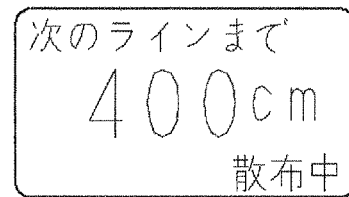 次のラインまで
400cm
散布中